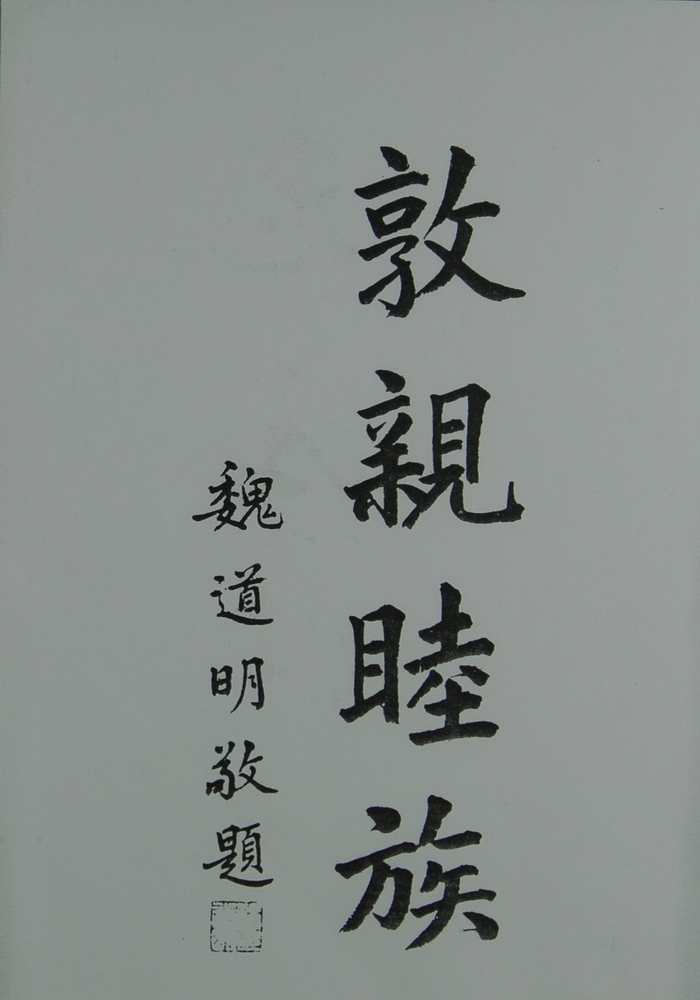 敦親睦族
魏道明敬題